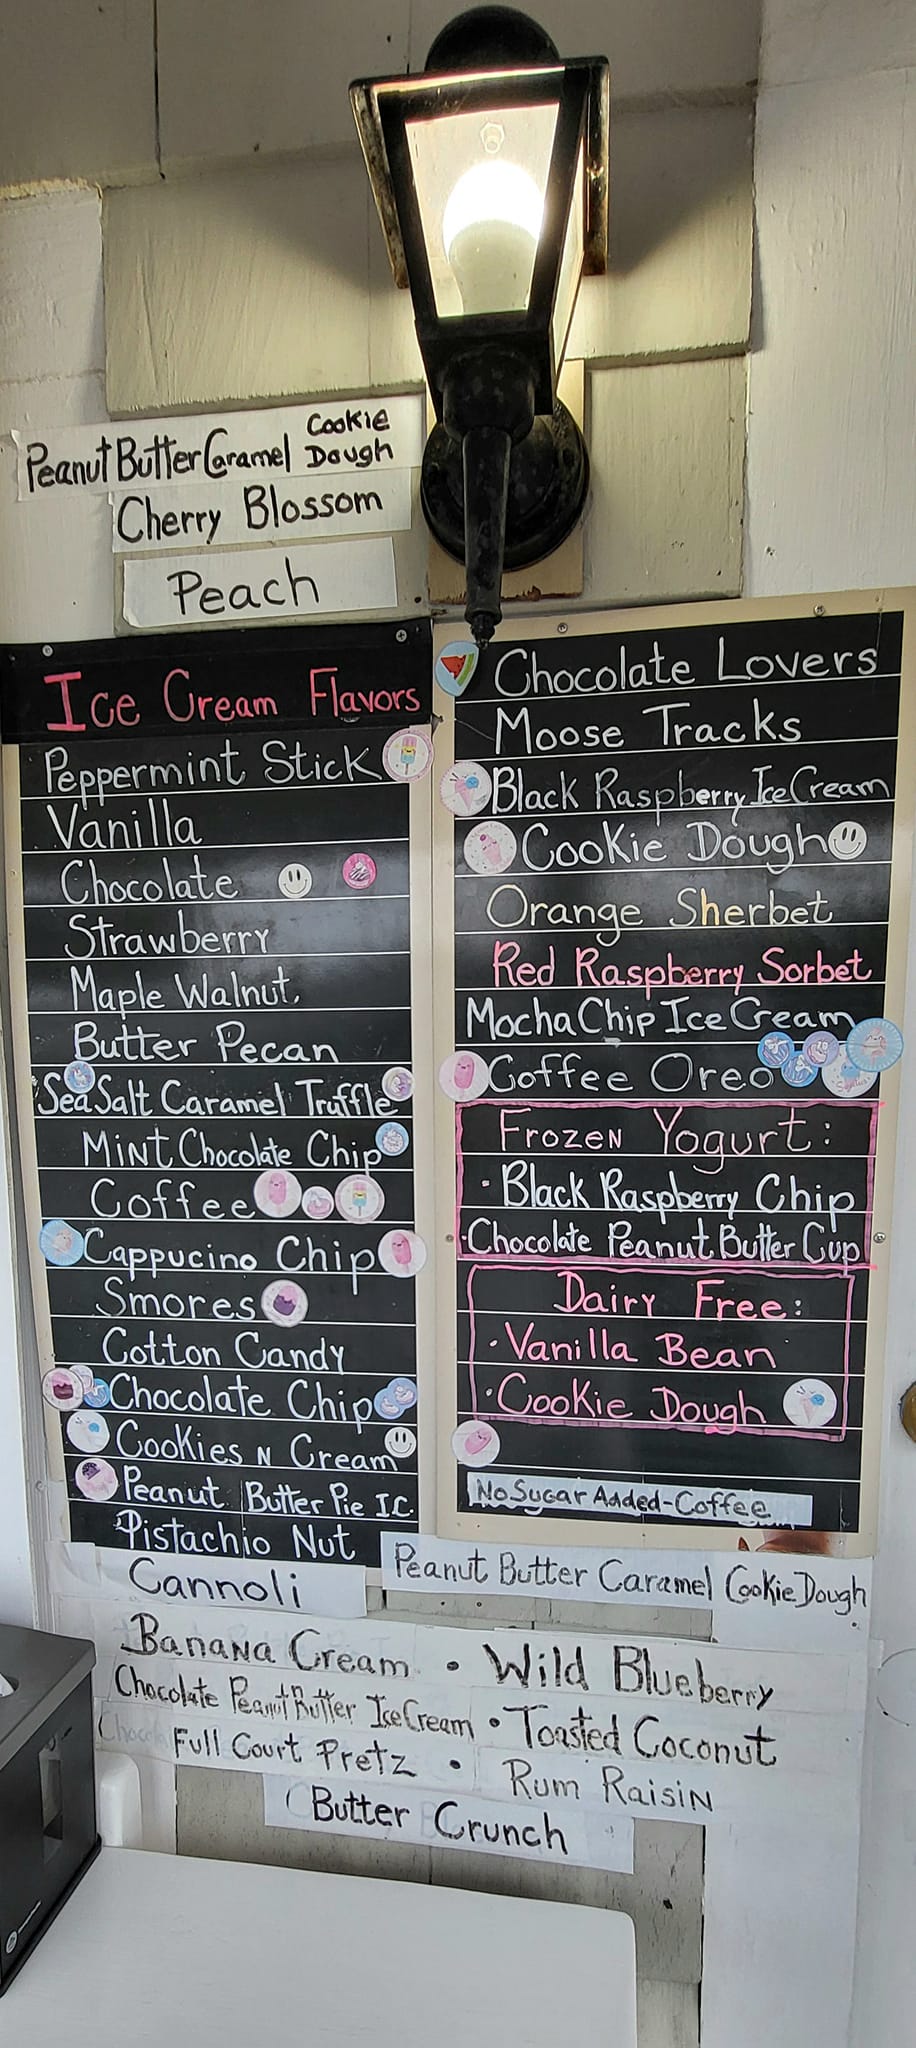 Peanut Butter Caramel Cookie Dough
Cherry Blossom
Peach
Ice Cream Flavors
Peppermint Stick
Vanilla
Chocolate
Strawberry
Maple Walnut
Butter Pecan
Sea Salt Caramel Truffle
Mint Chocolate Chip
Coffee
Cappucino Chip
Smores
Cotton Candy
Chocolate Chip
Cookies N Cream
Peanut Butter Pie I.C.
Pistachio Nut
Cannoli
Chocolate Lovers
Moose Tracks
Black Raspberry Ice Cream
Cookie Dough
Orange Sherbet
Red Raspberry Sorbet
Mocha Chip Ice Cream
Coffee Oreo
Frozen Yogurt:
· Black Raspberry Chip
· Chocolate Peanut Butter Cup
Dairy Free:
· Vanilla Bean
· Cookie Dough
No Sugar Added-Coffee
Peanut Butter Caramel Cookie Dough
Banana Cream • Wild Blueberry
Chocolate Peanut Butter Ice Cream • Toasted Coconut
Full Court Pretz • Rum Raisin
Butter Crunch